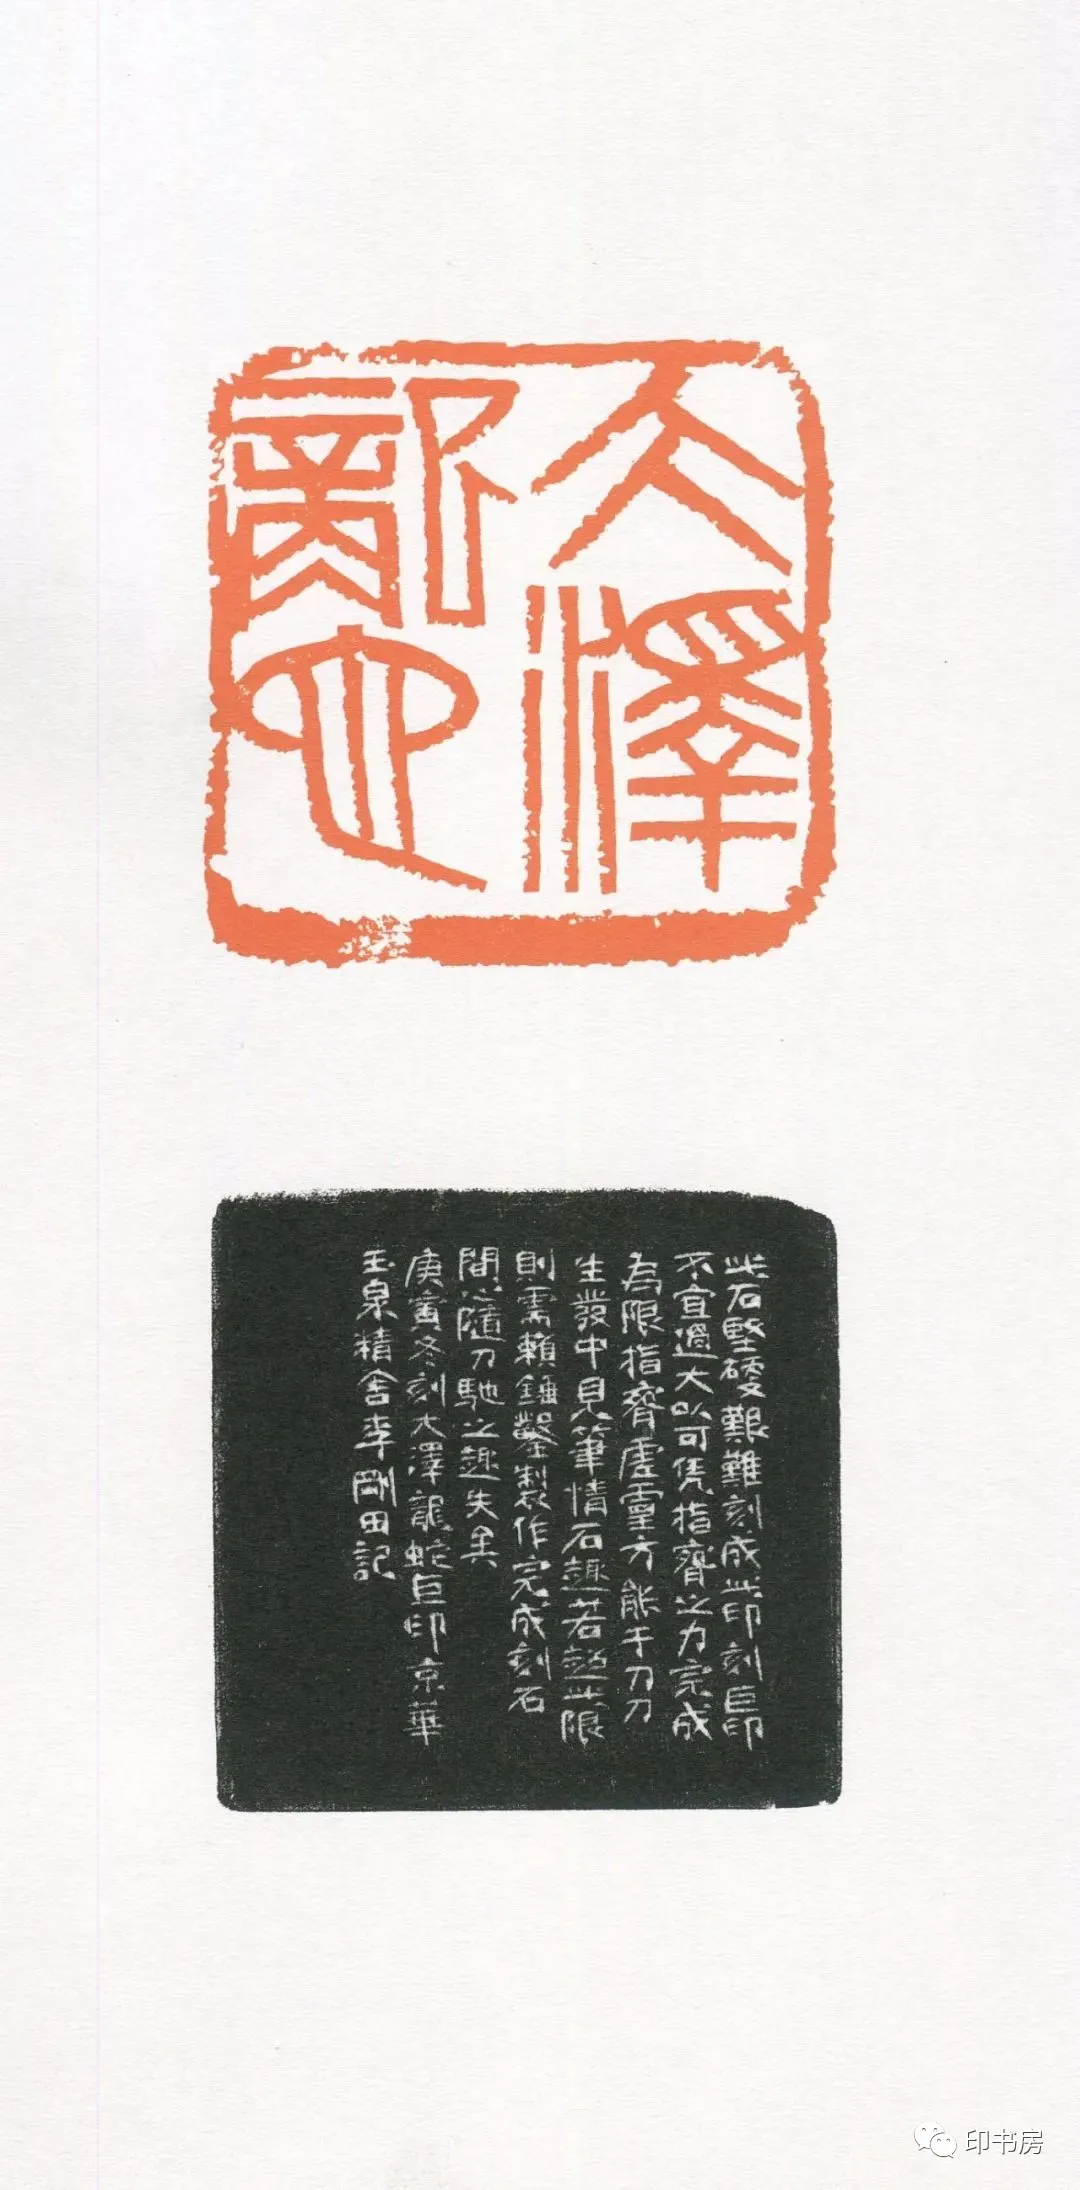 大澤
龍蛇
此石堅硬艱難刻成此印刻巨印
不宜過大以可凭指臂之力完成
為限指臂虛靈方能于刀刀
生發中見筆情石趣若超此限
則需賴錘鑿製作完成刻石
間隨刀馳之趣失矣
庚寅冬刻大澤龍蛇巨印京華
玉泉精舍李剛田記
印书房